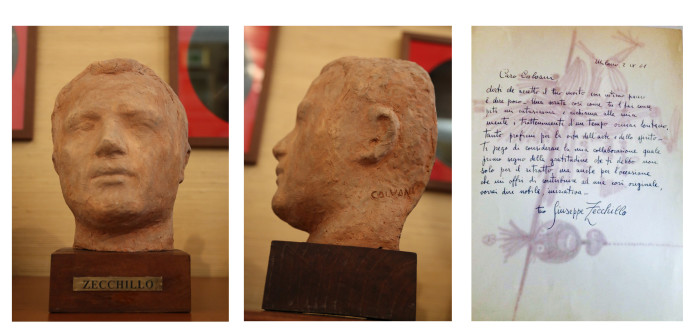 ZECCHILLO
CALVANI
Milano, 2
Caro Calvani
dirti che accetto il tuo invito con intimo
è dire poco. Una serata così come tu l'hai
entusiasma e
mente i trattenimenti d'un tempo ormai lontano,
tanto proficui per la vita dell'arte e dello spirito.
Ti prego di considerare la mia collaborazione quale
primo segno della gratitudine che ti debbo non
solo per il ritratto, ma anche per l'occasione
che mi offri di contribuire ad una così originale,
vorrei dire nobile, iniziativa.
tuo Giuseppe Zecchillo